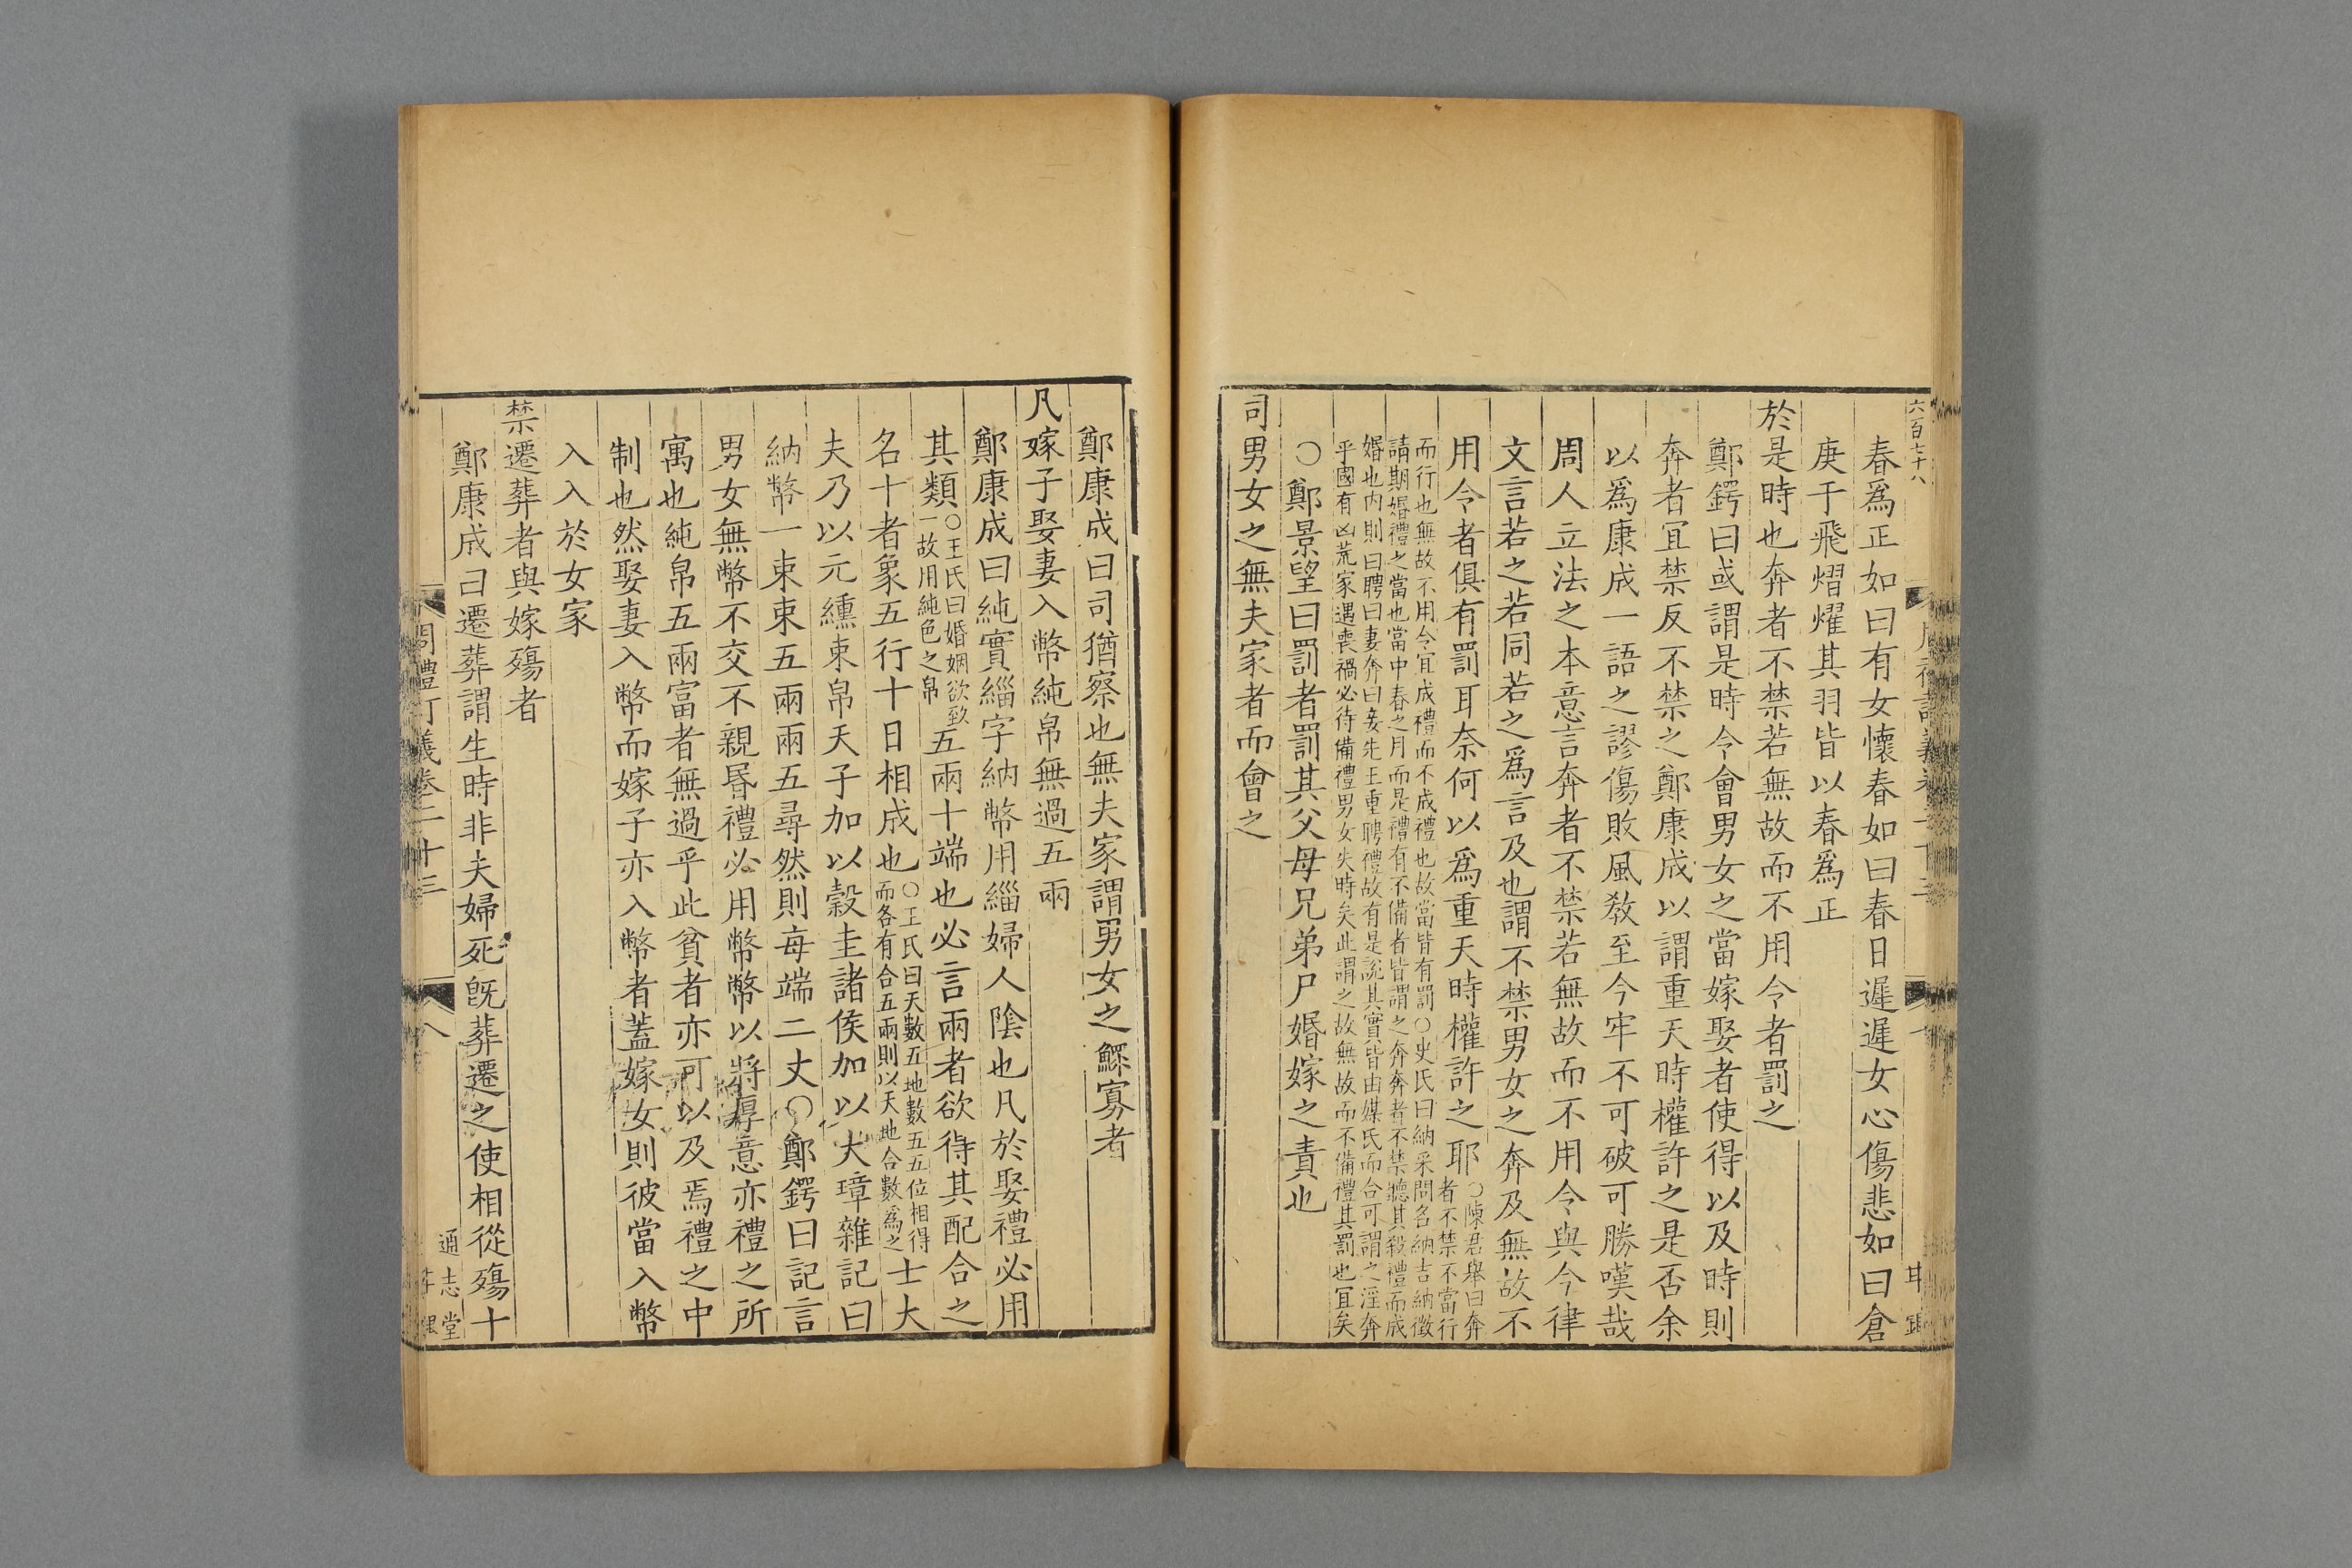 六百七十八
春爲正如曰有女懷春如曰春日遲遲女心傷悲如曰倉
庚于飛熠燿其羽皆以春爲正
於是時也奔者不禁若無故而不用令者罰之
鄭鍔曰或謂是時令會男女之當嫁娶者使得以及時則
奔者宜禁反不禁之鄭康成以謂重天時權許之是否余
以爲康成一語之謬傷敗風敎至今牢不可破可勝嘆哉
周人立法之本意言奔者不禁若無故而不用令與今律
文言若之若同若之爲言及也謂不禁男女之奔及無故不
用令者俱有罰耳奈何以爲重天時權許之耶
○陳君舉曰奔
者不禁不當行
而行也無故不用令宜成禮而不成禮也故當皆有罰○史氏曰納采問名納吉納徵
請期婚禮之當也當中春之月而是禮有不備者皆謂之奔奔者不禁聽其殺禮而成
婚也内則曰聘曰妻奔曰妾先王重聘禮故有是說其實皆由媒氏而合可謂之淫奔
乎國有凶荒家遇喪禍必待備禮男女失時矣此謂之故無故而不備禮其罰也宜矣
○鄭景望曰罰者罰其父母兄弟尸婚嫁之責也
司男女之無夫家者而會之
鄭康成曰司猶察也無夫家謂男女之鰥寡者
凡嫁子娶妻入幣純帛無過五兩
鄭康成曰純實緇字納幣用緇婦人陰也凡於娶禮必用
其類
○王氏曰婚姻欲致
一故用純色之帛
五兩十端也必言兩者欲得其配合之
名十者象五行十日相成也
○王氏曰天數五地數五五位相得
而各有合五兩則以天地合數爲之
士大
夫乃以元纁束帛天子加以穀圭諸侯加以大璋雜記曰
納幣一束束五兩兩五尋然則每端二丈○鄭鍔曰記言
男女無幣不交不親昬禮必用幣幣以將厚意亦禮之所
寓也純帛五兩富者無過乎此貧者亦可以及焉禮之中
制也然娶妻入幣而嫁子亦入幣者蓋嫁女則彼當入幣
入入於女家
禁遷葬者與嫁殤者
鄭康成曰遷葬謂生時非夫婦死旣葬遷之使相從殤十
周禮訂義卷二十三
八
通志堂